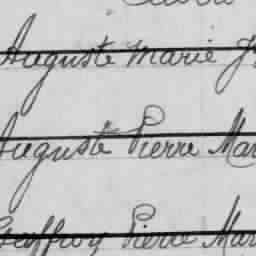 Auguste Marie J
Auguste Pierre Mar
Geoffroy Pierre Mar